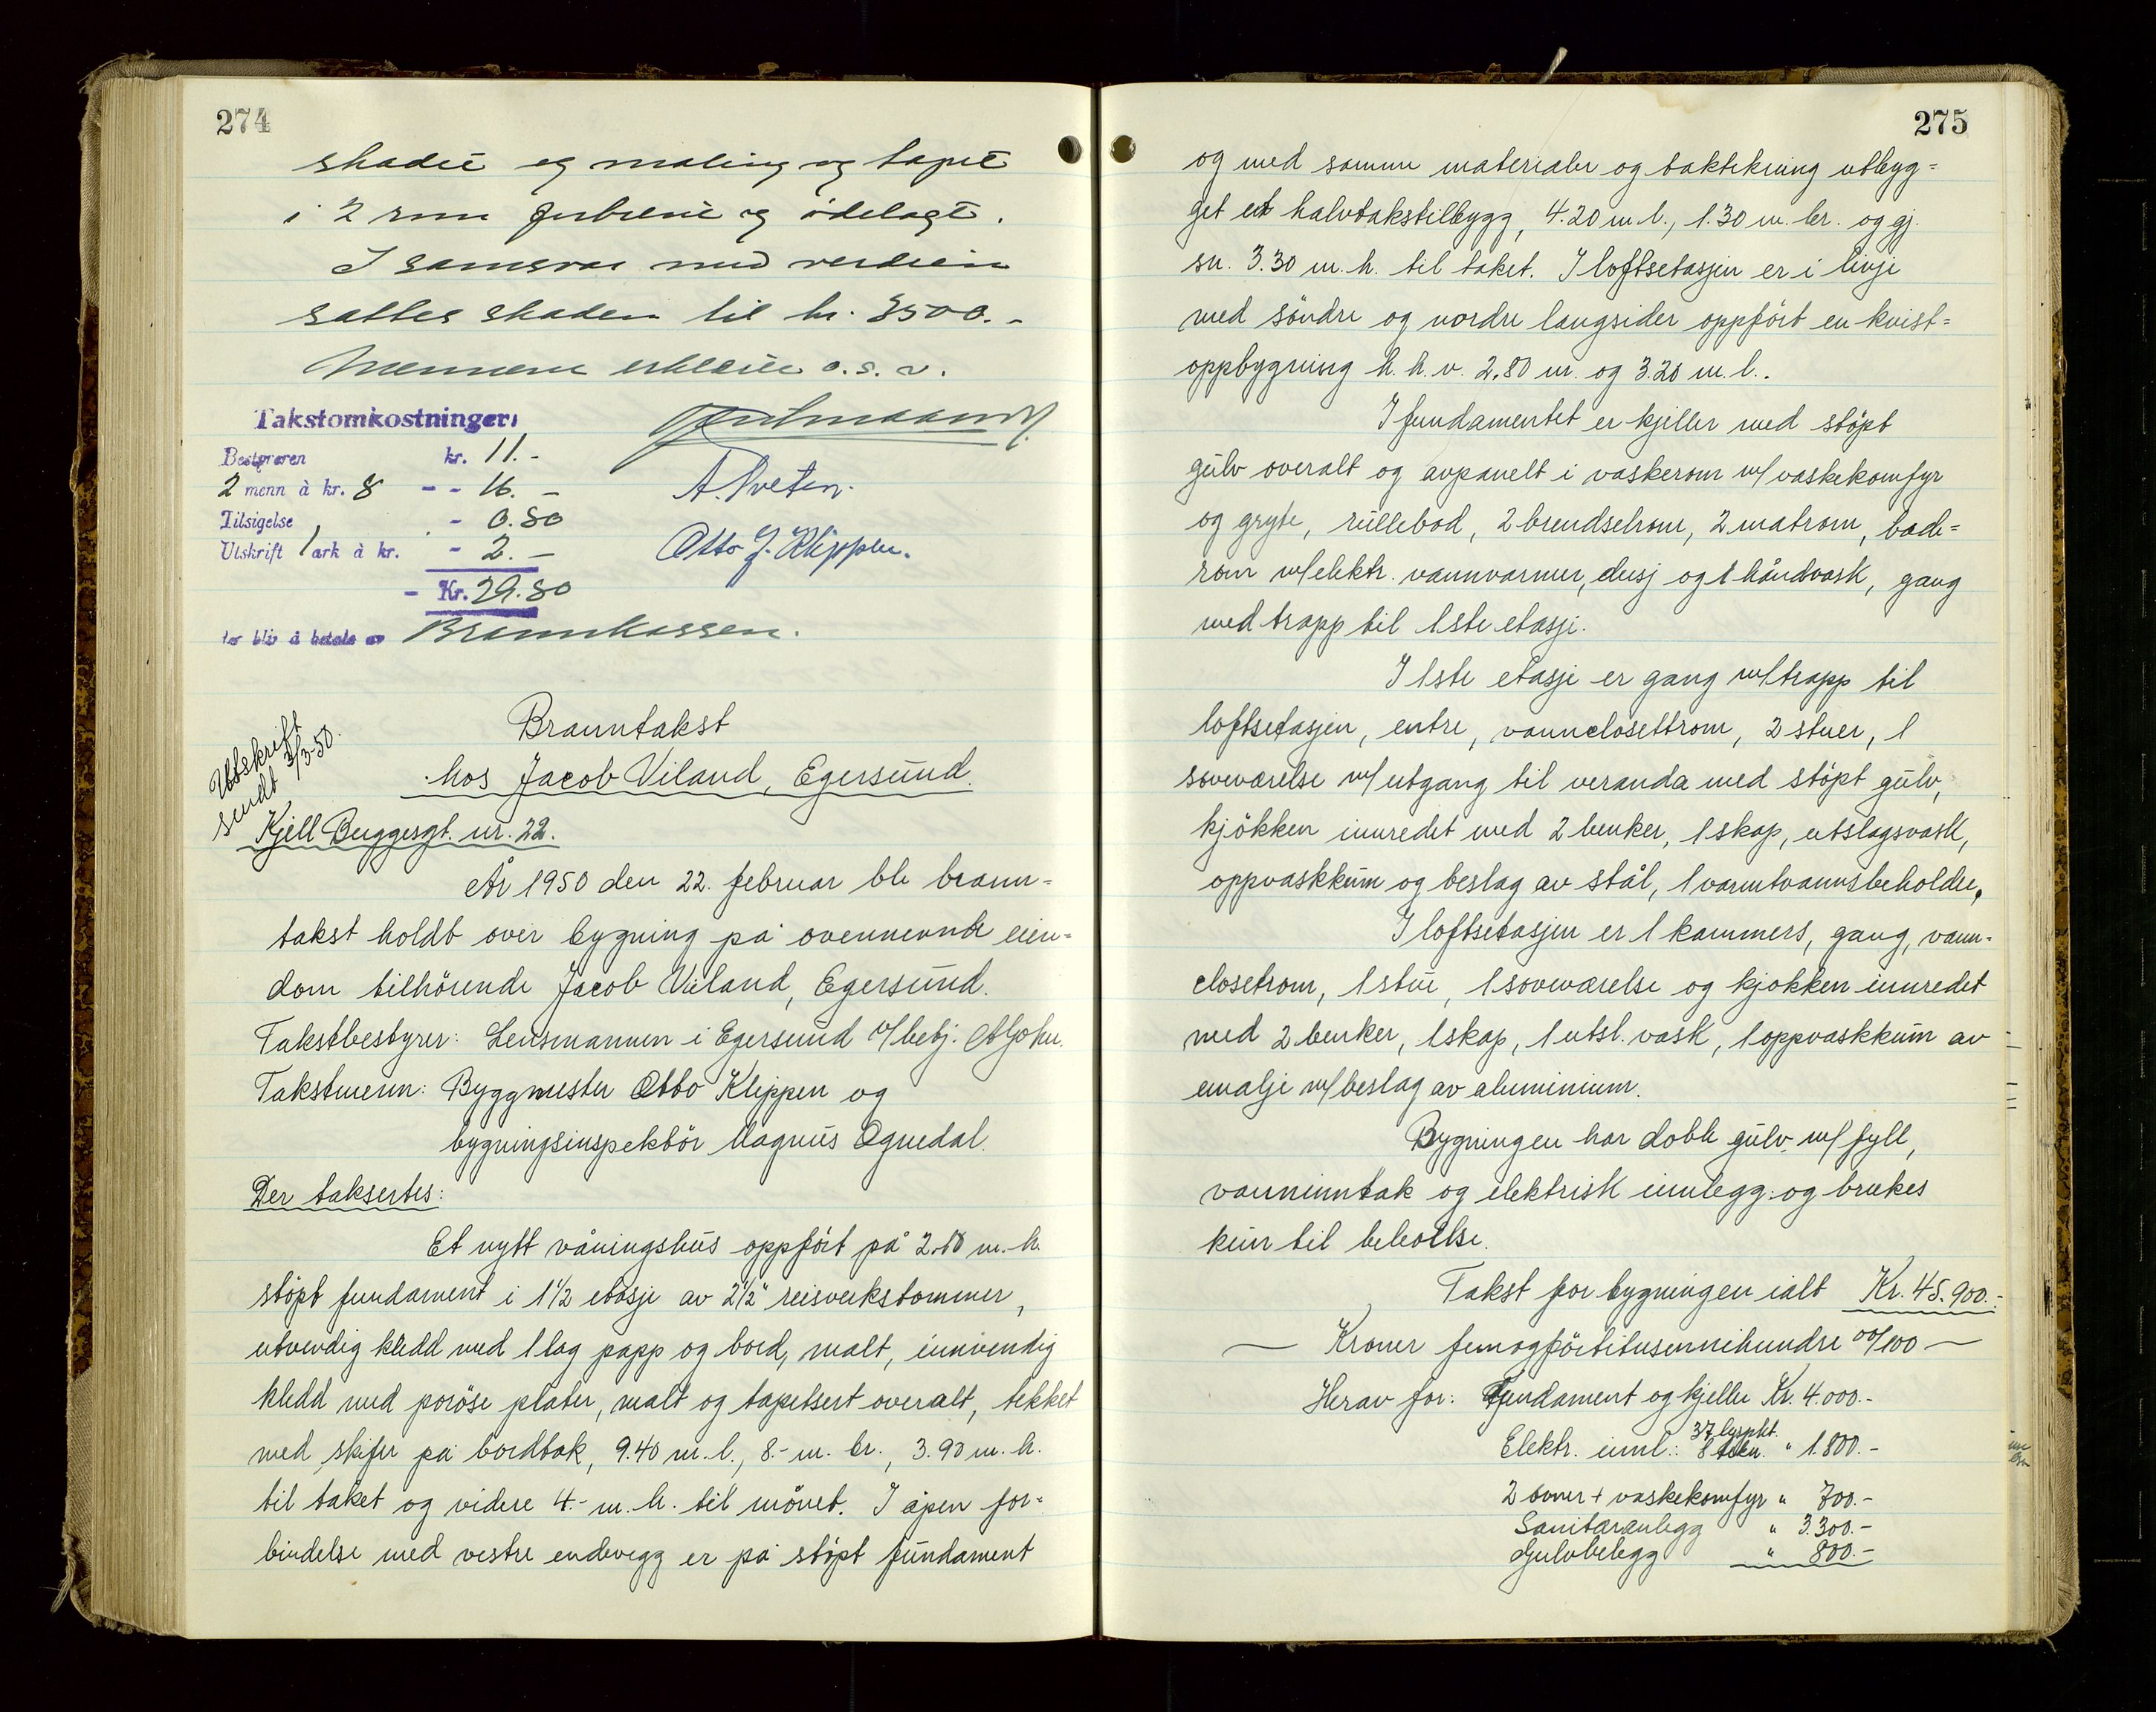 274
skadet og maling og tapet
i 2 rom forbrent og ødelagt.
I samsvar med verdien
settes skaden til kr. 3500.-
Mennene erklærte o.s.v.
Takstomkostninger:
Bestyreren kr. 11.-
2 menn à kr. 8 - - 16.-
Tilsigelse - 0.80
Utskrift 1 ark à kr. - 2.-
- Kr. 29.80
som blir å betale av Brannkassen.
A. Sveten.
Otto J. Klippen.
Utskrift
sendt 3/3-50.
Branntakst
hos Jacob Viland, Egersund.
Kjell Buggesgt. nr. 22.
År 1950 den 22. februar ble brann=
takst holdt over bygning på ovennevnte eien=
dom tilhörende Jacob Viland, Egersund.
Takstbestyrer: Lensmannen i Egersund v/betj.
Takstmenn: Byggmester Otto Klippen og
bygningsinspektör Magnus Ognedal.
Der taksertes:
Et nytt våningshus oppfört på 2.10 m. h.
stöpt fundament i 1 1/2 etasje av 2 1/2" reisverkstømmer,
utvendig kledd med 1 lag papp og bord, malt, innvendig
kledd med poröse plater, malt og tapetsert overalt, tekket
med skifer på bordtak, 9.40 m. l., 8.- m. br., 3.90 m. h.
til taket og videre 4.- m. h. til mönet. I åpen for=
bindelse med vestre endevegg er på stöpt fundament
275
og med samme materialer og taktekning utbyg=
get et halvtakstilbygg, 4.20 m. l., 1.30 m. br. og gj.
sn. 3.30 m. h. til taket. I loftsetasjen er i linje
med söndre og nordre langsider oppfört en kvist=
oppbygning h. h. v. 2.80 m. og 3.20 m. l..
I fundamentet er kjeller med stöpt
gulv overalt og avpanelt i vaskerom m/vaskekomfyr
og gryte, rullebod, 2 brendselrom, 2 matrom, bade=
rom m/elektr. vannvarmer, dusj og 1 håndvask, gang
med trapp til 1ste etasje.
I 1ste etasje er gang m/trapp til
loftsetasjen, entre, vannclosettrom, 2 stuer, 1
soveværelse m/utgang til veranda med stöpt gulv,
kjökken innredet med 2 benker, 1 skap, utslagsvask,
oppvaskkum og beslag av stål, 1 varmtvannsbeholder.
I loftsetasjen er 1 kammers, gang, vann-
closetrom, 1 stue, 1 soveværelse og kjøkken innredet
med 2 benker, 1 skap, 1 utsl. vask, 1 oppvaskkum av
emalje m/beslag av aluminium.
Bygningen har doble gulv m/fyll,
vanninntak og elektrisk innlegg: og brukes
kun til beboelse.
Takst for bygningen ialt Kr. 45.900.-
— Kroner femogförtitusennihundre 00/100 —
Herav for: Fundament og kjeller Kr. 4.000.-
37 lyspkt.
Elektr. innl.: 8 " 1.800.-
2 ovner + vaskekomfyr " 700.-
Sanitæranlegg " 3.300.-
Gulvbelegg " 800.-